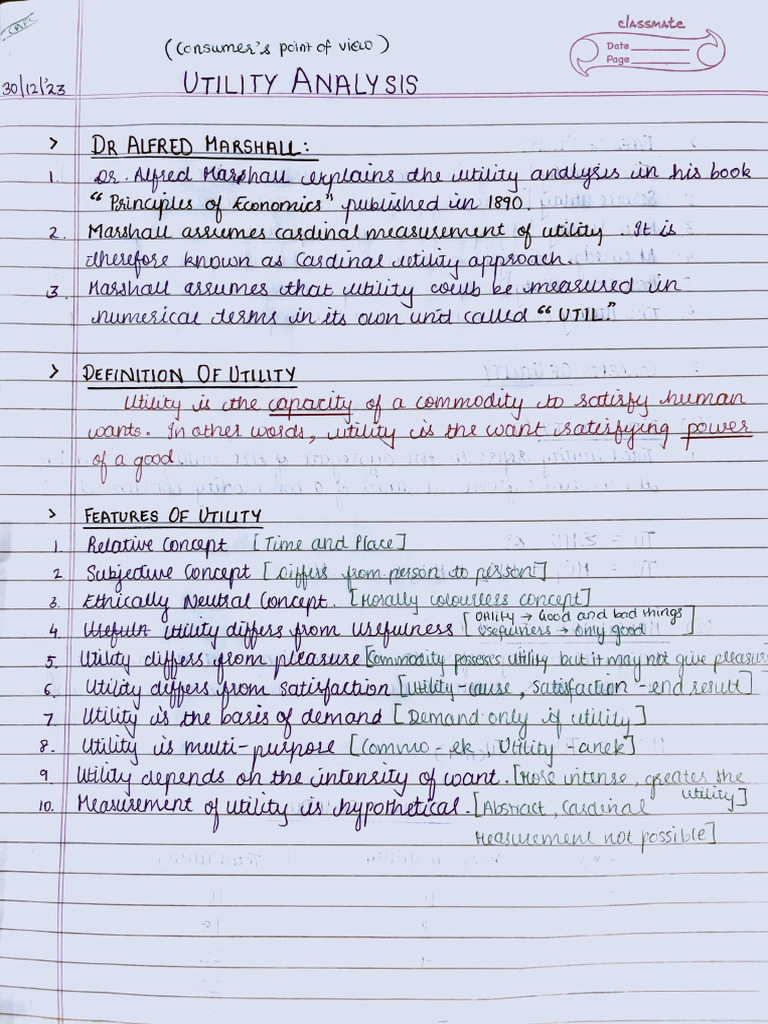 classmate
Date
Page
(Consumer's point of view)
30/12/'23
UTILITY ANALYSIS
> DR ALFRED MARSHALL:
1. Dr. Alfred Marshall explains the utility analysis in his book
"Principles of Economics" published in 1890.
2. Marshall assumes cardinal measurement of utility. It is
therefore known as Cardinal utility approach.
3. Marshall assumes that utility coulb be measured in
numerical terms in its own unit called "UTIL."
> DEFINITION OF UTILITY
Utility is the capacity of a commodity to satisfy human
wants. In other words, utility is the want satisfying power
of a good.
> FEATURES OF UTILITY
1. Relative Concept [Time and Place]
2. Subjective Concept [Differs from person to person]
3. Ethically Neutral Concept. [Morally colourless concept]
4. Usefuln utility differs from Usefulness [Utility → Good and bad things
Usefulness → only good]
5. Utility differs from pleasure [Commodity possesses utility but it may not give pleasure
6. Utility differs from satisfaction [Utility-cause, Satisfaction-end result]
7. Utility is the basis of demand [Demand only if utility]
8. Utility is multi-purpose [Commo-ek Utility-anek]
9. Utility depends on the intensity of want. [More intense, greater the
utility]
10. Measurement of utility is hypothetical. [Abstract, Cardinal
Measurement not possible]